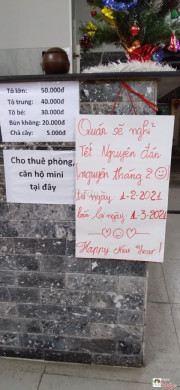 Tô lớn: 50.000đ
Tô trung: 40.000đ
Tô bé: 30.000đ
Bún không: 20.000đ
Chả cây: 5.000đ
Cho thuê phòng,
căn hộ mini
tại đây
Quán sẽ nghỉ
Tết Nguyên Đán
nguyên tháng 2
từ ngày 1-2-2021
bán lại ngày 1-3-2021
Happy New Year!